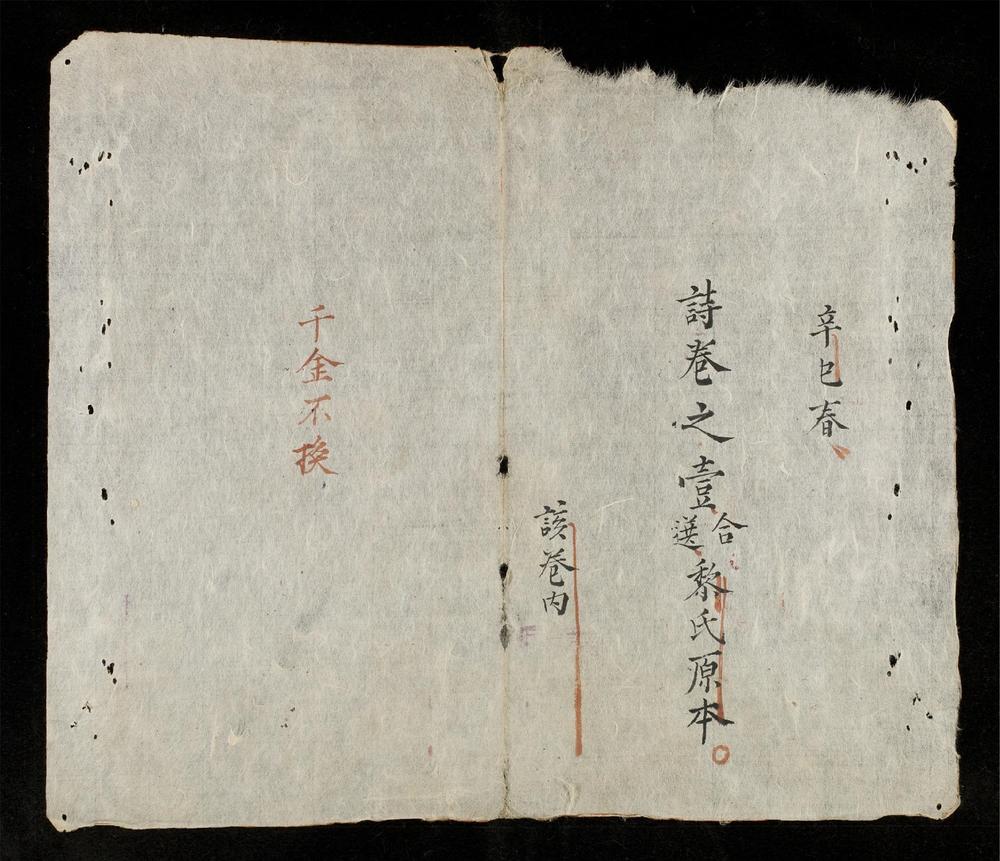 辛巳春
詩卷之壹合選黎氏原本
該卷内
千金不換